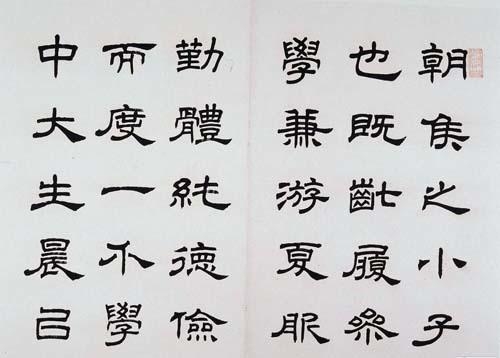 朝侯之小子
也既齔履參
學兼游夏服
勤體純德儉
而度一不學
中大生晨㠯